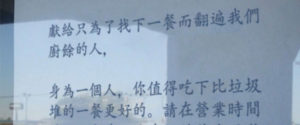 獻給只為了找下一餐而翻遍我們
廚餘的人，
身為一個人，你值得吃下比垃圾
堆的一餐更好的。請在營業時間